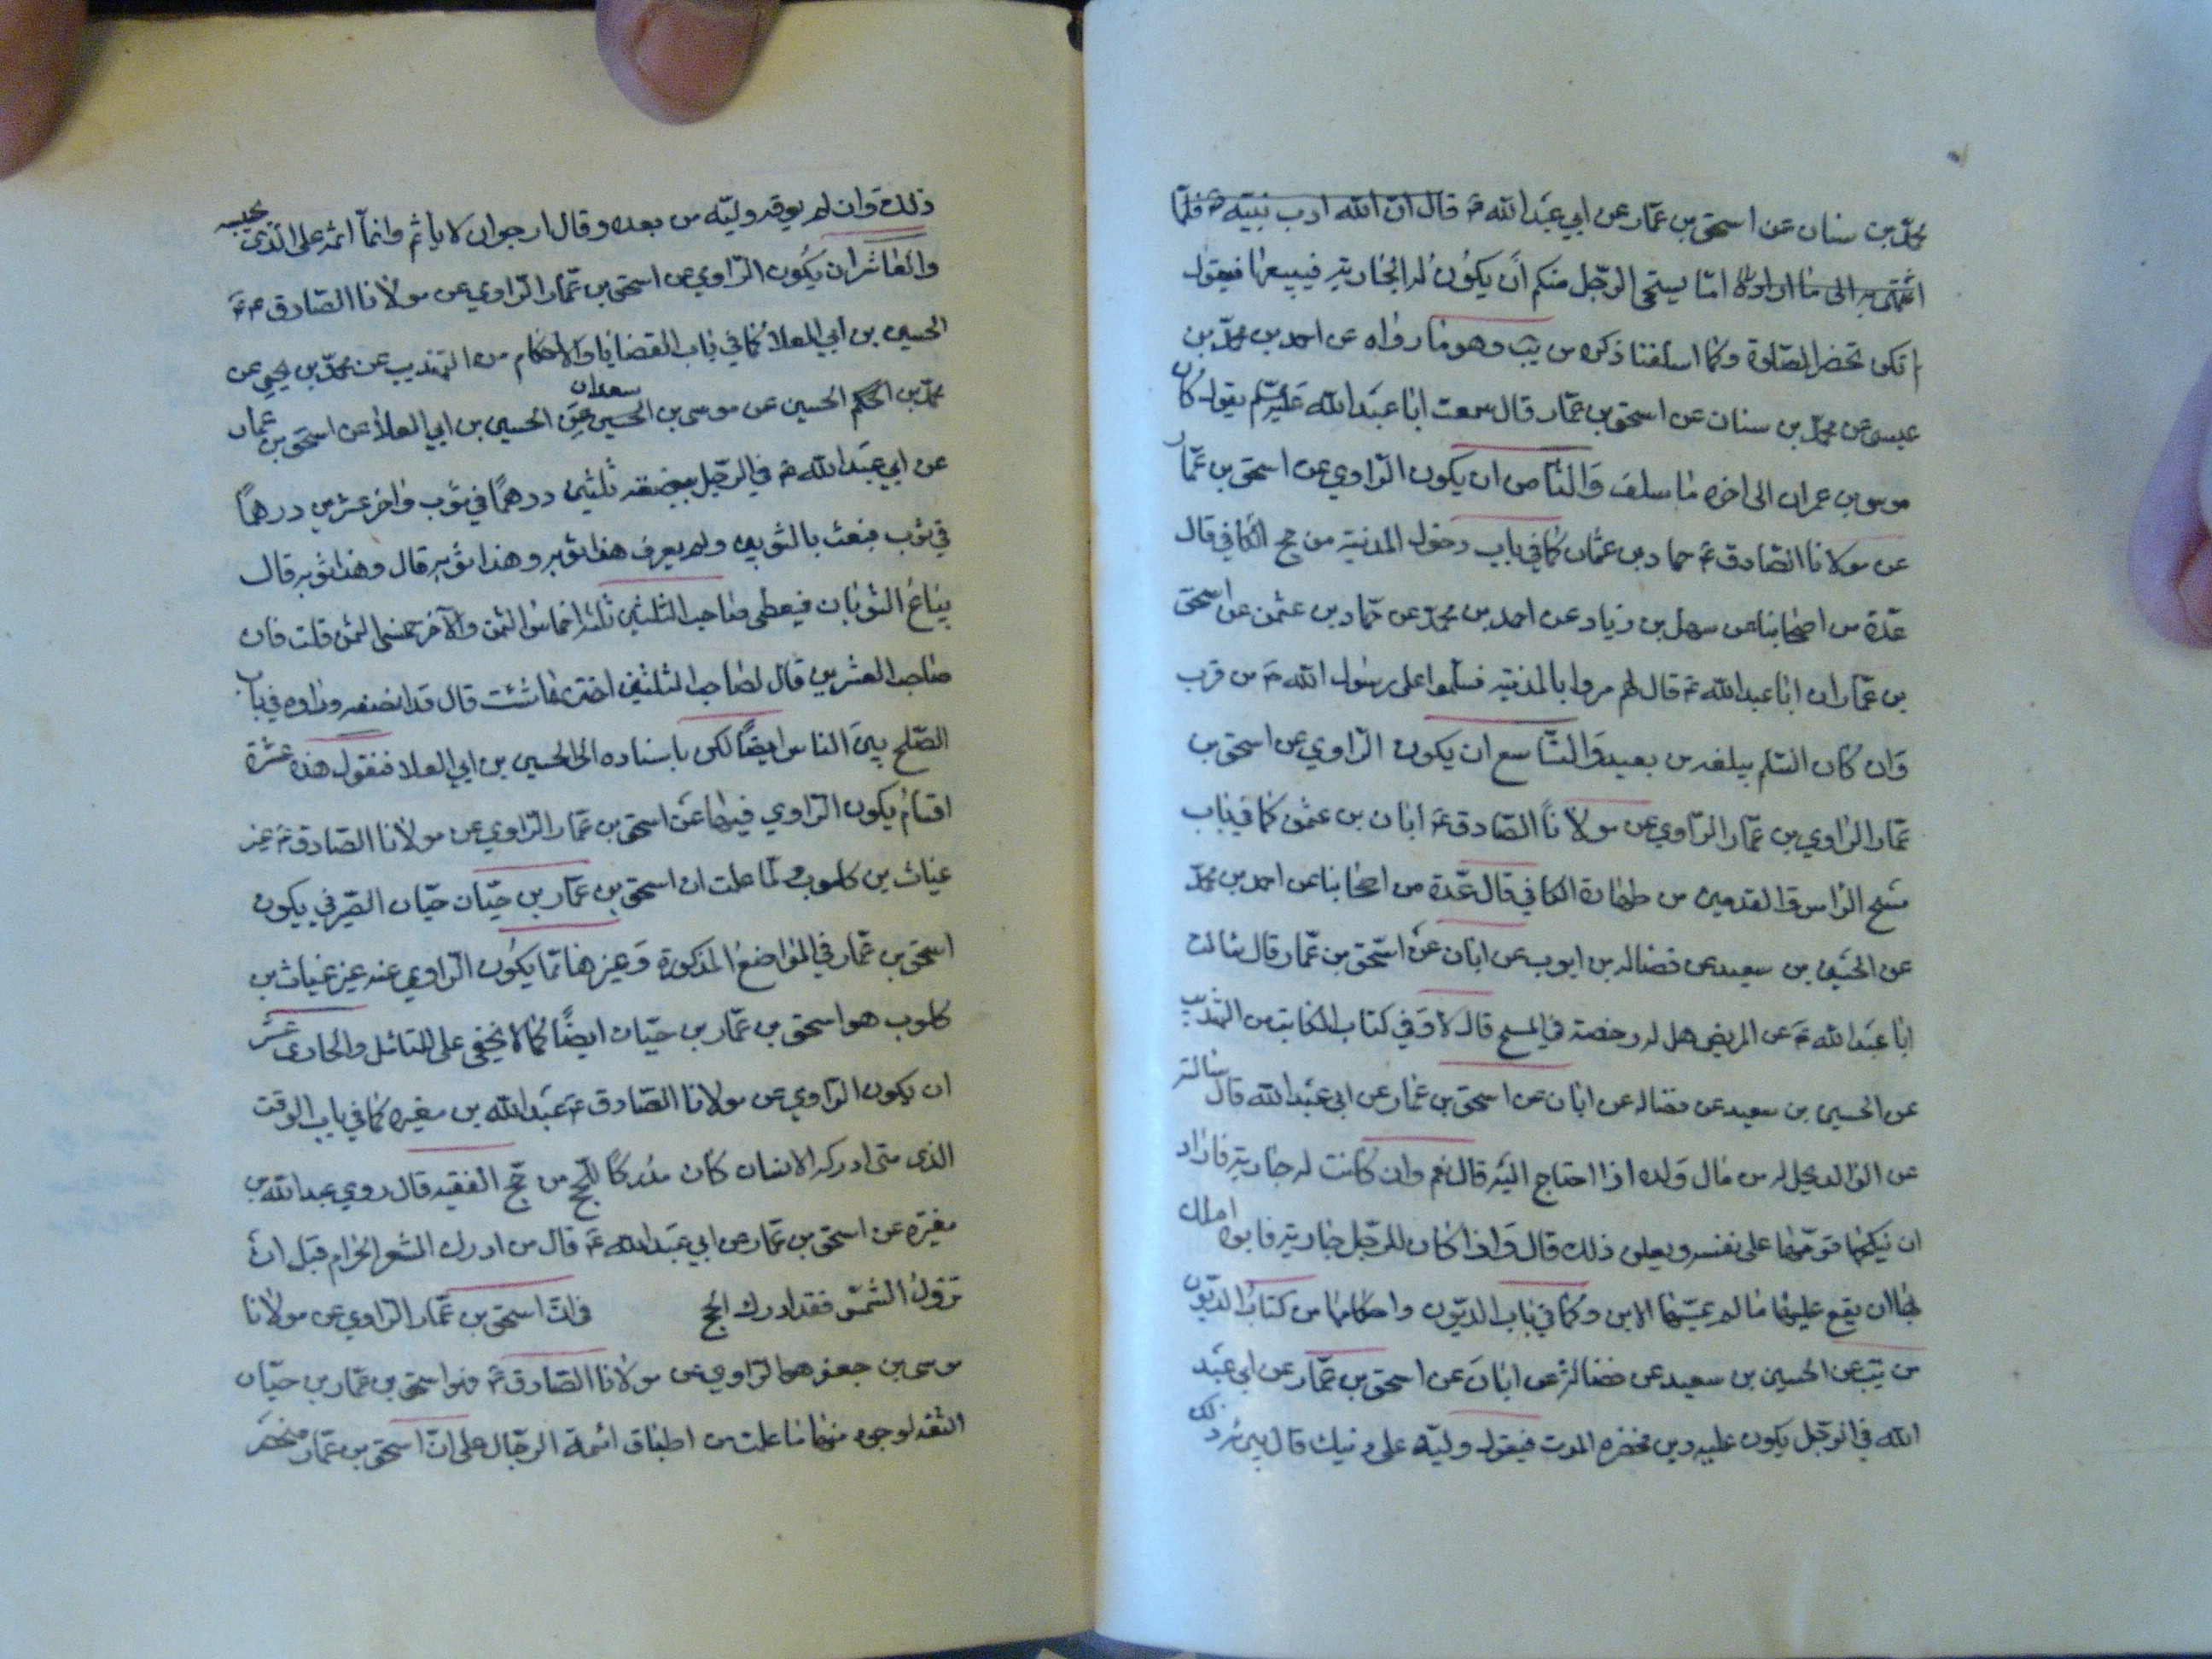 محمد بن سنان عن اسحق بن عمّار عن ابي عبد الله ع قال ان الله ادب نبيّه ص فلمّا
انتهى به الى ما اراد قال امّا يستحي الرّجل منكم أن يكون له الجارية فيبيعها فيقول
لم تكن تحضر الصّلوة وكما اسلفنا ذكره من يب وهو ما رواه عن احمد بن محمّد بن
عيسى عن محمّد بن سنان عن اسحق بن عمّار قال سمعت ابا عبد الله عليه السّلم يقول كان
موسى بن عمران الى اخره ما سلف والثامن ان يكون الرّاوي عن اسحق بن عمّار
عن مولانا الصّادق ع حماد بن عثمان كما في باب دخول المدينة من حج الكافي قال
عدّة من اصحابنا عن سهل بن زياد عن احمد بن محمّد عن حمّاد بن عثمن عن اسحق
بن عمّار ان ابا عبد الله ع قال لهم مروا بالمدينة فسلّموا على رسول الله ص من قرب
وان كان السّلم يبلغه من بعيد والتّاسع ان يكون الرّاوي عن اسحق بن
عمّار الرّاوي بن عمّار الرّاوي عن مولانا الصّادق ع ابان بن عثمن كما في باب
مسح الرّاس والقدمين من طهارة الكافي قال عدّة من اصحابنا عن احمد بن محمّد
عن الحسين بن سعيد عن فضاله بن ايوب عن ابان عن اسحق بن عمّار قال سالت
ابا عبد الله ع عن المريض هل له رخصة في المسح قال لا وفي كتاب المكاتب من التهذيب
عن الحسين بن سعيد عن فضاله عن ابان عن اسحق بن عمّار عن ابي عبد الله قال سالته
عن الوالد يحل له من مال ولده اذا احتاج اليه قال نعم وان كانت له جارية فاراد
ان ينكحها قوّمها على نفسه ويعلن ذلك قال واذا كان للرّجل جارية فابوه املك
بها ان يقع عليها ما لم يمسّها الابن وكما في باب الديون واحكامها من كتاب الديون
من يب عن الحسين بن سعيد عن فضالة عن ابان عن اسحق بن عمّار عن ابي عبد
الله في الرّجل يكون عليه دين فحضره الموت فيقول وليّه علي دينك قال يبرئه ذلك
ذلك وان لم يوفه وليّه من بعده وقال ارجو ان لا ياثم وانمّا اثمه على الّذي يحبسه
والعاشر ان يكون الرّاوي عن اسحق بن عمّار الرّاوي عن مولانا الصّادق ع
الحسين بن ابي العلا كما في باب القضايا والاحكام من التهذيب عن محمّد بن يحيى عن
محمّد بن الحكم الحسين عن موسى بن الحسين سعدان عن الحسين بن ابي العلا عن اسحق بن عمّار
عن ابي عبد الله ع في الرّجل يبضعه ثلثين درهمًا في ثوب واخر عشرين درهمًا
في ثوب فبعث بالثوبين ولم يعرف هذا ثوبه وهذا ثوبه قال وهذا ثوبه قال
يباع الثوبان فيعطى صاحب الثلثين ثلثه اخماس الثمن والآخر خمسى الثمن قلت فان
صاحب العشرين قال لصاحب الثلثين اختر ايّهما شئت قال قد انصفه ورواه في باب
الصّلح بين الناس ايضًا لكن باسناده الى الحسين بن ابي العلا فنقول هذه عشرة
اقسام يكون الرّاوي فيها عن اسحق بن عمّار الرّاوي عن مولانا الصّادق ع غير
غياث بن كلوب ولمّا علمت ان اسحق بن عمّار بن حيّان حيّان الصّيرفي يكون
اسحق بن عمّار في المواضع المذكورة وغيرها ممّا يكون الرّاوي عنه غير غياث بن
كلوب هو اسحق بن عمّار بن حيّان ايضًا كما لا يخفى على المتامّل والحادى عشر
ان يكون الرّاوي عن مولانا الصّادق ع عبد الله بن مغيره كما في باب الوقت
الذى متى ادركه الانسان كان مدركًا للحجّ من حجّ الفقيه قال روي عبد الله بن
مغيره عن اسحق بن عمّار عن ابي عبد الله ع قال من ادرك المشعر الحرام قبل ان
تزول الشّمس فقد ادرك الحجّ وامّا اسحق بن عمّار الرّاوي عن مولانا
موسى بن جعفر هما الرّاوي عن مولانا الصّادق ع وهو اسحق بن عمّار بن حيّان
الثقة لوجوه منها ما علمت من اطباق ائمة الرّجال على ان اسحق بن عمّار منحصر